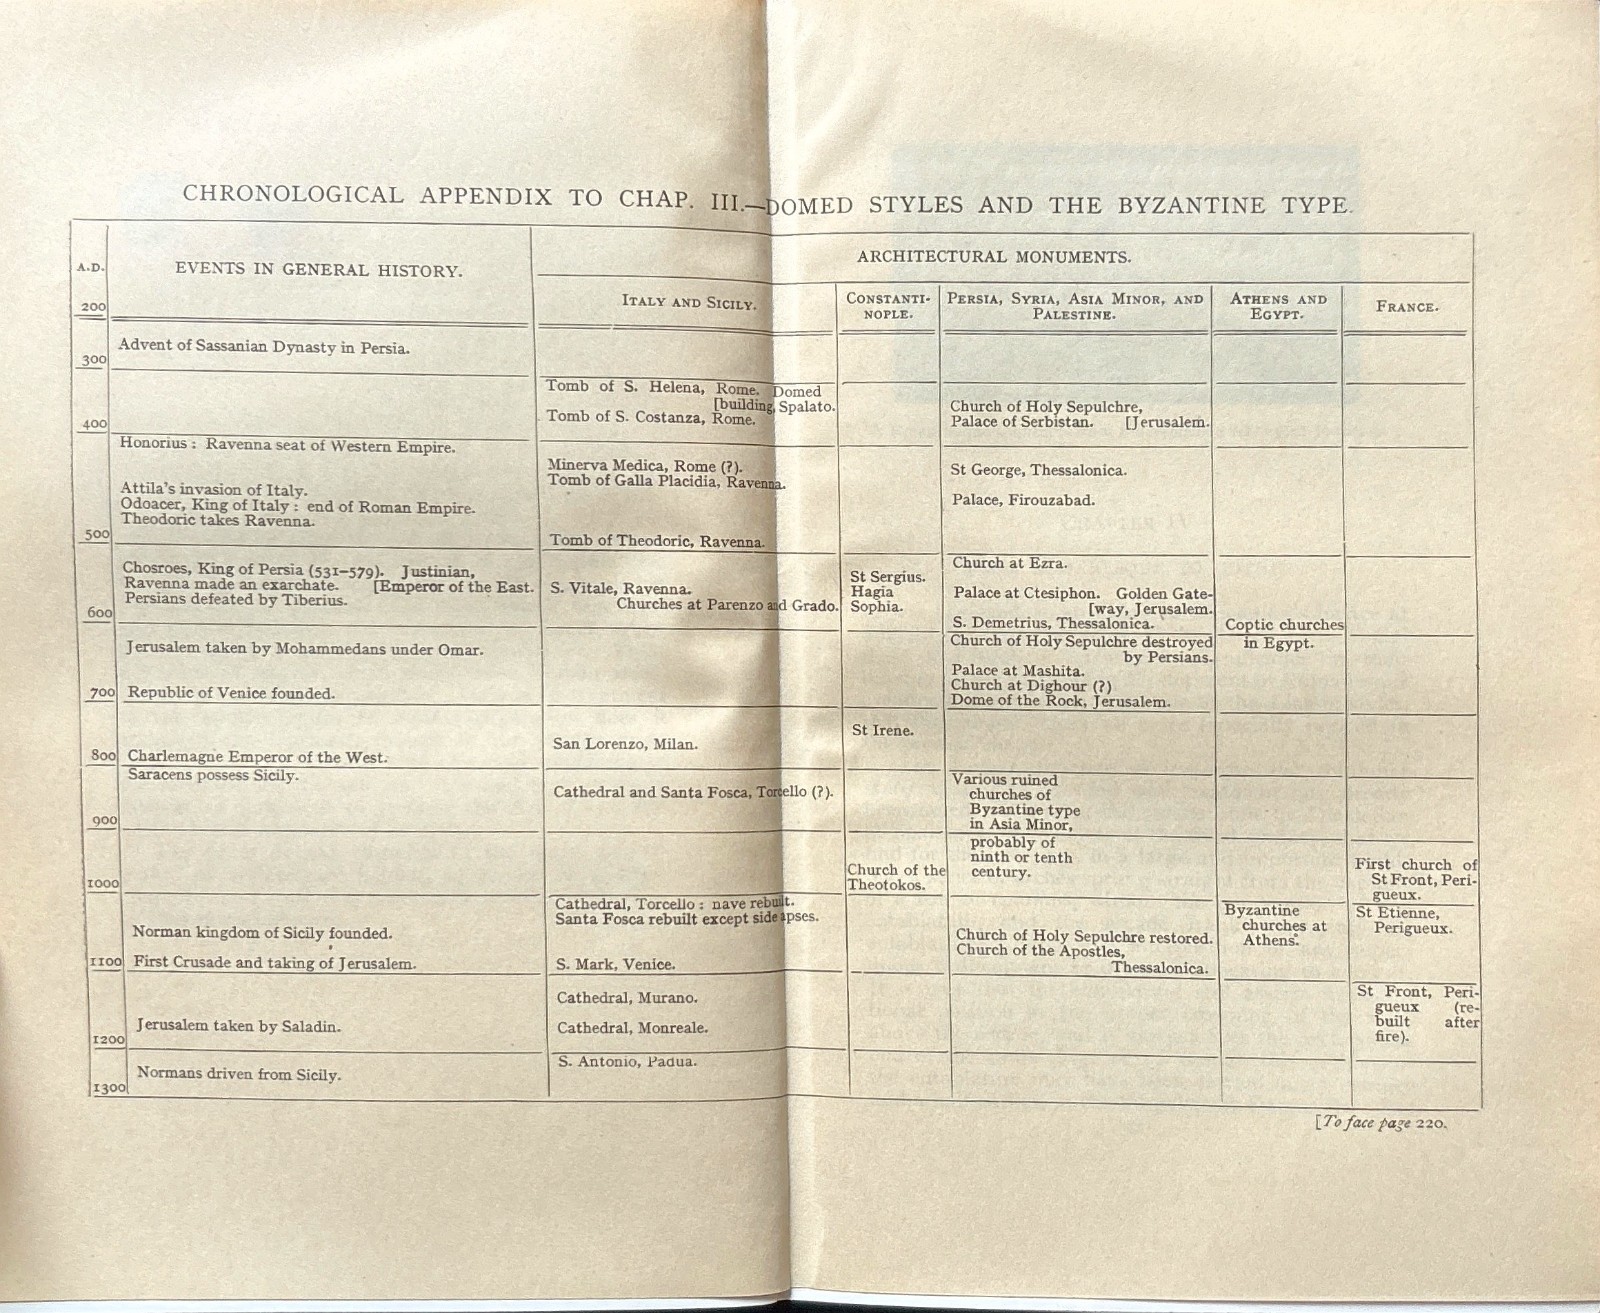 CHRONOLOGICAL APPENDIX TO CHAP. III.—DOMED STYLES AND THE BYZANTINE TYPE.
A.D.
EVENTS IN GENERAL HISTORY.
ARCHITECTURAL MONUMENTS.
ITALY AND SICILY.
CONSTANTI-
NOPLE.
PERSIA, SYRIA, ASIA MINOR, AND
PALESTINE.
ATHENS AND
EGYPT.
FRANCE.
200
Advent of Sassanian Dynasty in Persia.
300
Tomb of S. Helena, Rome. Domed
[building, Spalato.
Tomb of S. Costanza, Rome.
Church of Holy Sepulchre,
Palace of Serbistan. [Jerusalem.
400
Honorius : Ravenna seat of Western Empire.
Attila's invasion of Italy.
Odoacer, King of Italy : end of Roman Empire.
Theodoric takes Ravenna.
Minerva Medica, Rome (?).
Tomb of Galla Placidia, Ravenna.
Tomb of Theodoric, Ravenna.
St George, Thessalonica.
Palace, Firouzabad.
500
Chosroes, King of Persia (531–579). Justinian,
Ravenna made an exarchate. [Emperor of the East.
Persians defeated by Tiberius.
S. Vitale, Ravenna.
Churches at Parenzo and Grado.
St Sergius.
Hagia
Sophia.
Church at Ezra.
Palace at Ctesiphon. Golden Gate-
[way, Jerusalem.
S. Demetrius, Thessalonica.
Coptic churches
in Egypt.
600
Jerusalem taken by Mohammedans under Omar.
Republic of Venice founded.
Church of Holy Sepulchre destroyed
by Persians.
Palace at Mashita.
Church at Dighour (?)
Dome of the Rock, Jerusalem.
700
Charlemagne Emperor of the West.
San Lorenzo, Milan.
St Irene.
800
Saracens possess Sicily.
Cathedral and Santa Fosca, Torcello (?).
Various ruined
churches of
Byzantine type
in Asia Minor,
probably of
ninth or tenth
century.
900
Church of the
Theotokos.
First church of
St Front, Peri-
gueux.
1000
Norman kingdom of Sicily founded.
First Crusade and taking of Jerusalem.
Cathedral, Torcello : nave rebuilt.
Santa Fosca rebuilt except side apses.
S. Mark, Venice.
Church of Holy Sepulchre restored.
Church of the Apostles,
Thessalonica.
Byzantine
churches at
Athens.
St Etienne,
Perigueux.
1100
Jerusalem taken by Saladin.
Cathedral, Murano.
Cathedral, Monreale.
St Front, Peri-
gueux (re-
built after
fire).
1200
Normans driven from Sicily.
S. Antonio, Padua.
1300
[To face page 220.